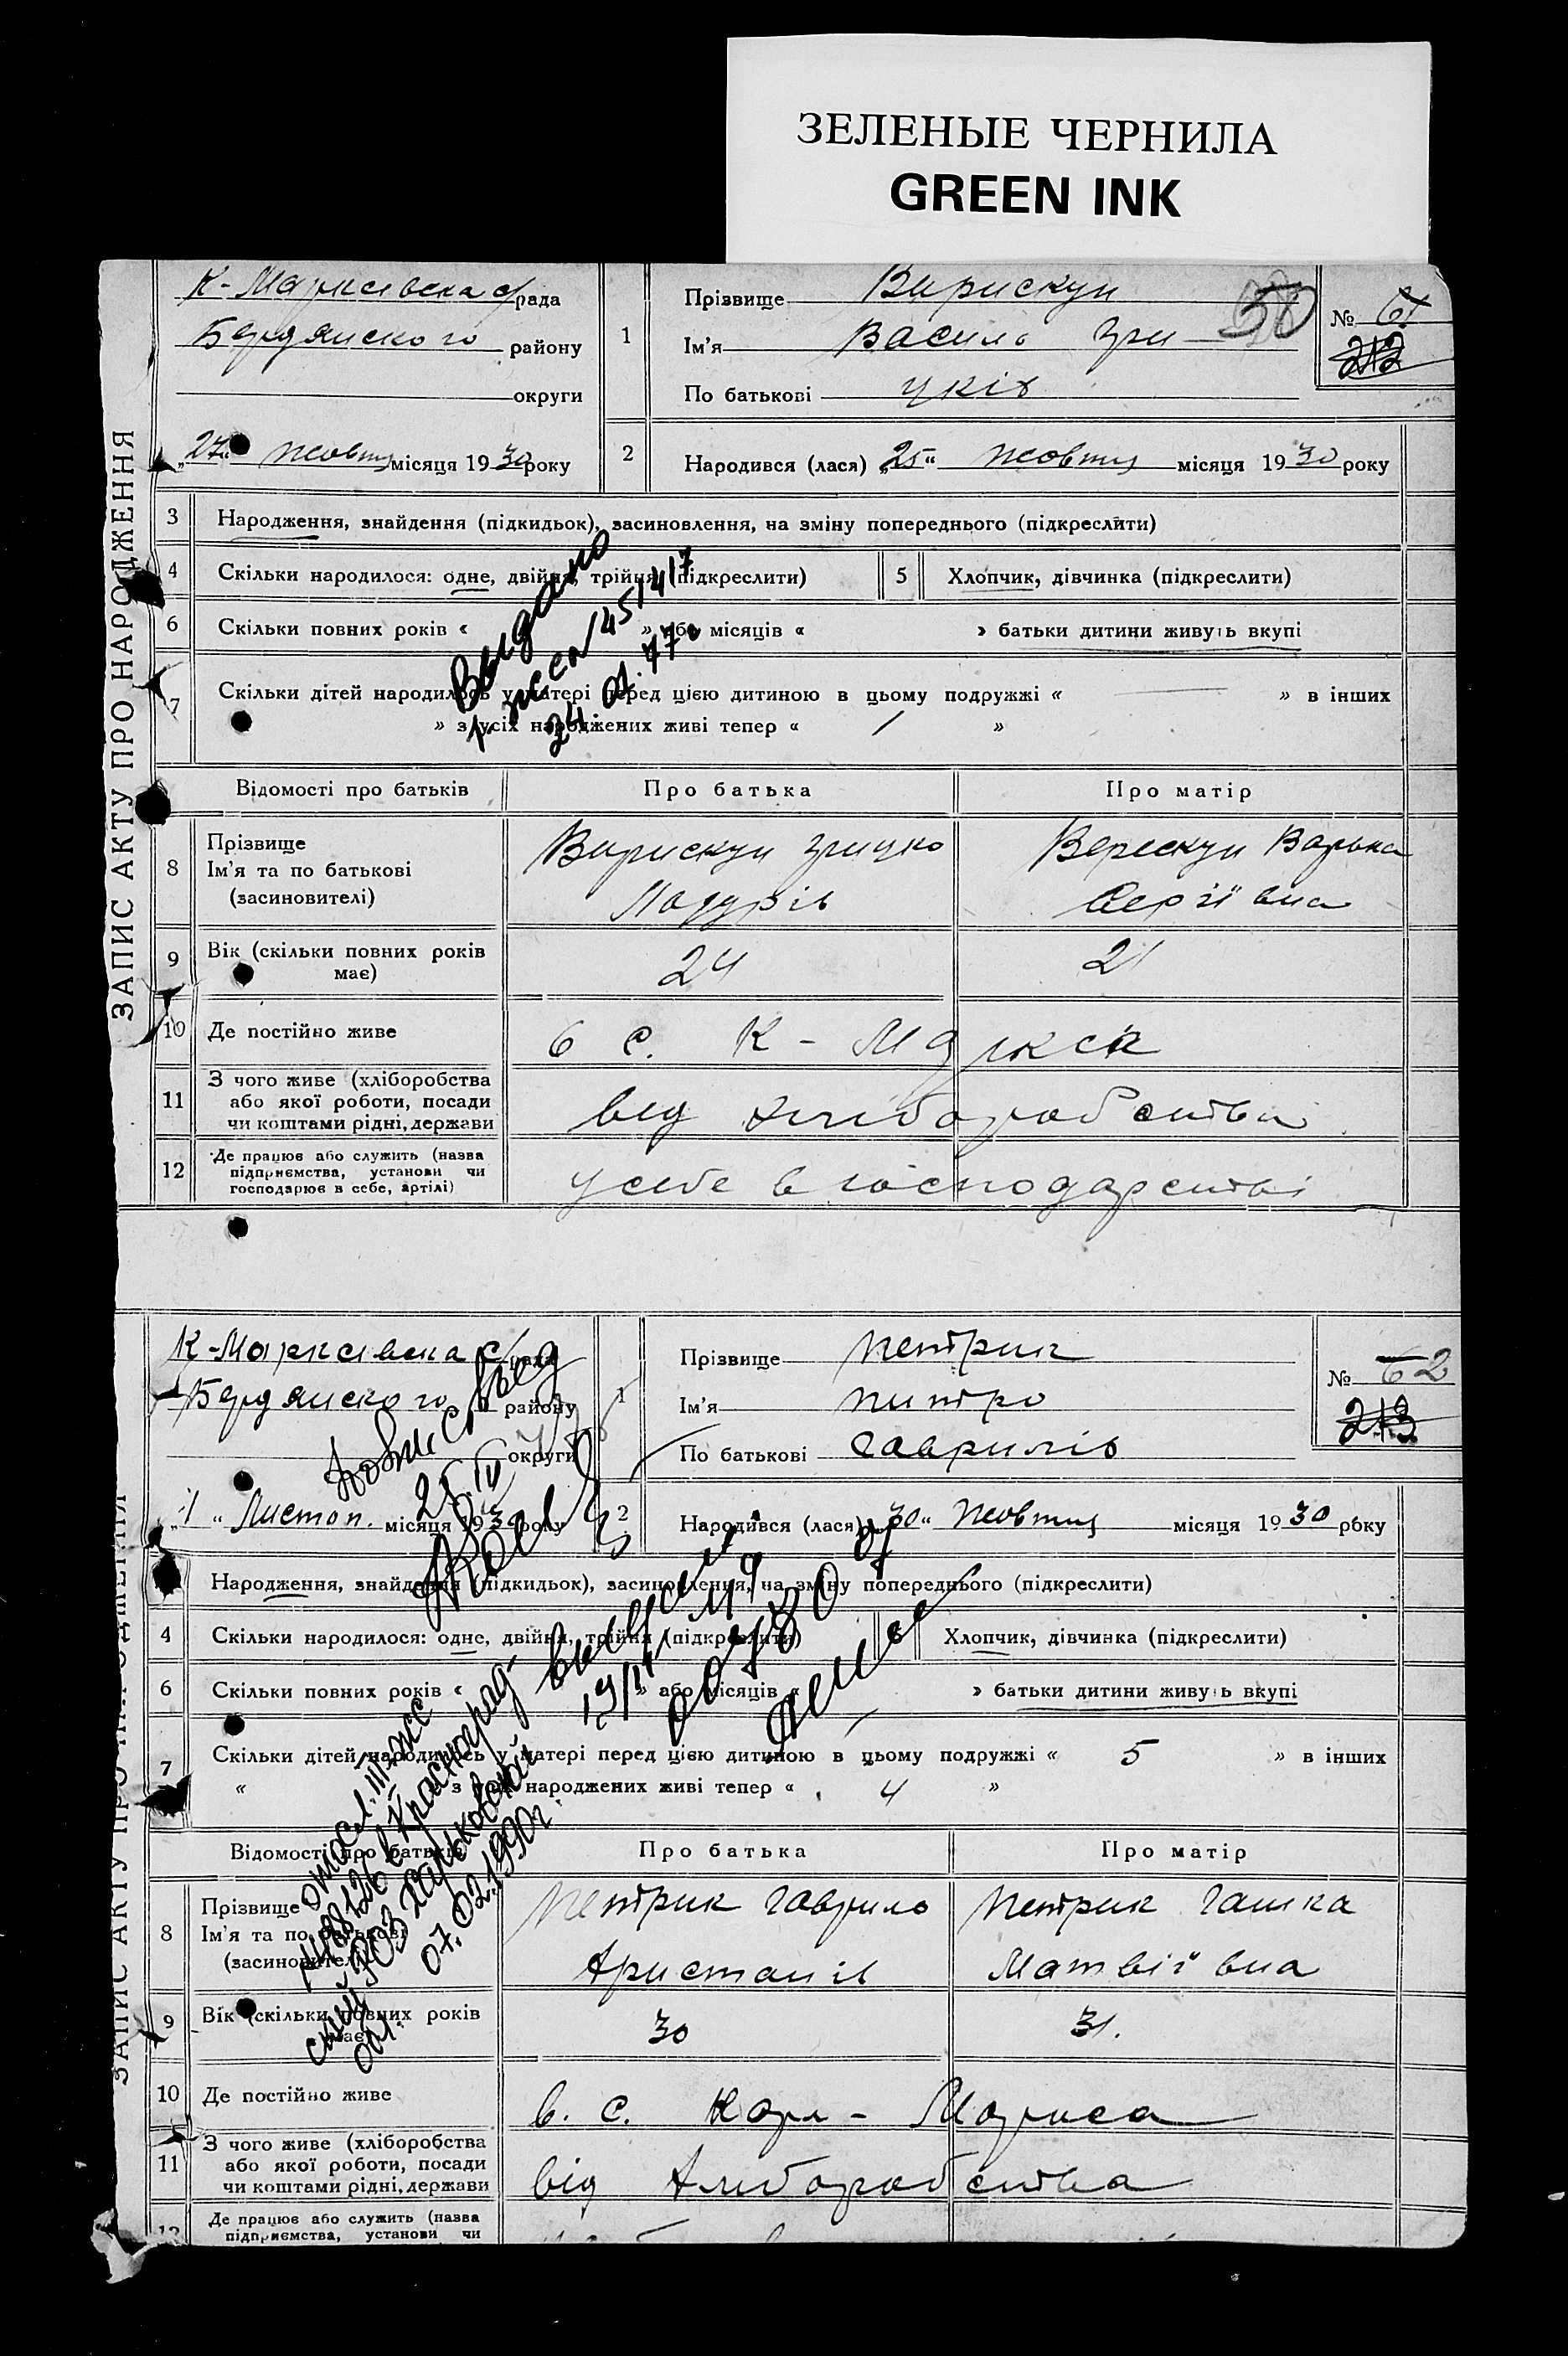 ЗЕЛЕНЫЕ ЧЕРНИЛА
GREEN INK
ЗАПИС АКТУ ПРО НАРОДЖЕННЯ
К-Марксівска с/рада
Бердянского району
округи
„27“ жовтн місяця 1930 року
1
Прізвище Вирискун
Ім'я Василь Гри
По батькові цків
50
№ 61
212
2 Народився (лася) „25“ жовтня місяця 1930 року
3 Народження, знайдення (підкидьок), засиновлення, на зміну попереднього (підкреслити)
4 Скільки народилося: одне, двійня, трійня (підкреслити)
5 Хлопчик, дівчинка (підкреслити)
6 Скільки повних років « » або місяців « » батьки дитини живуть вкупі
7 Скільки дітей народилось у матері перед цією дитиною в цьому подружжі « — » в інших
» з усіх народжених живі тепер « 1 »
Выдано
24.01.47
Відомості про батьків Про батька Про матір
8 Прізвище
Ім'я та по батькові
(засиновителі)
Вирискун Грицко
Верескун Варька
Сергіївна
9 Вік (скільки повних років
має)
24 21
10 Де постійно живе
в с. К-Маркса
11 З чого живе (хліборобства
або якої роботи, посади
чи коштами рідні, держави
від хліборобства
12 Де працює або служить (назва
підприємства, установи чи
господарює в себе, артілі)
у себе в господарстві
ЗАПИС АКТУ ПРО НАРОДЖЕННЯ
К-Марксівска с/рада
Бердянского району
округи
„1“ Листоп. місяця 1930 року
1
Прізвище Петрик
Ім'я Питро
По батькові Гаврилів
№ 62
213
2 Народився (лася) „30“ жовтня місяця 1930 року
Народження, знайдення (підкидьок), засиновлення, на зміну попереднього (підкреслити)
4 Скільки народилося: одне, двійня, трійня (підкреслити)
5 Хлопчик, дівчинка (підкреслити)
6 Скільки повних років « » або місяців « » батьки дитини живуть вкупі
7 Скільки дітей народилось у матері перед цією дитиною в цьому подружжі « 5 » в інших
« з усіх народжених живі тепер « 4 »
07.02.1990г.
Відомості про батьків Про батька Про матір
8 Прізвище
Ім'я та по батькові
(засиновителі)
Петрик Гаврило
Аристанів
Петрик Гашка
Матвіївна
9 Вік (скільки повних років
має)
30 31.
10 Де постійно живе
в. с. Карл-Маркса
11 З чого живе (хліборобства
або якої роботи, посади
чи коштами рідні, держави
від хлиборобства
12 Де працює або служить (назва
підприємства, установи чи